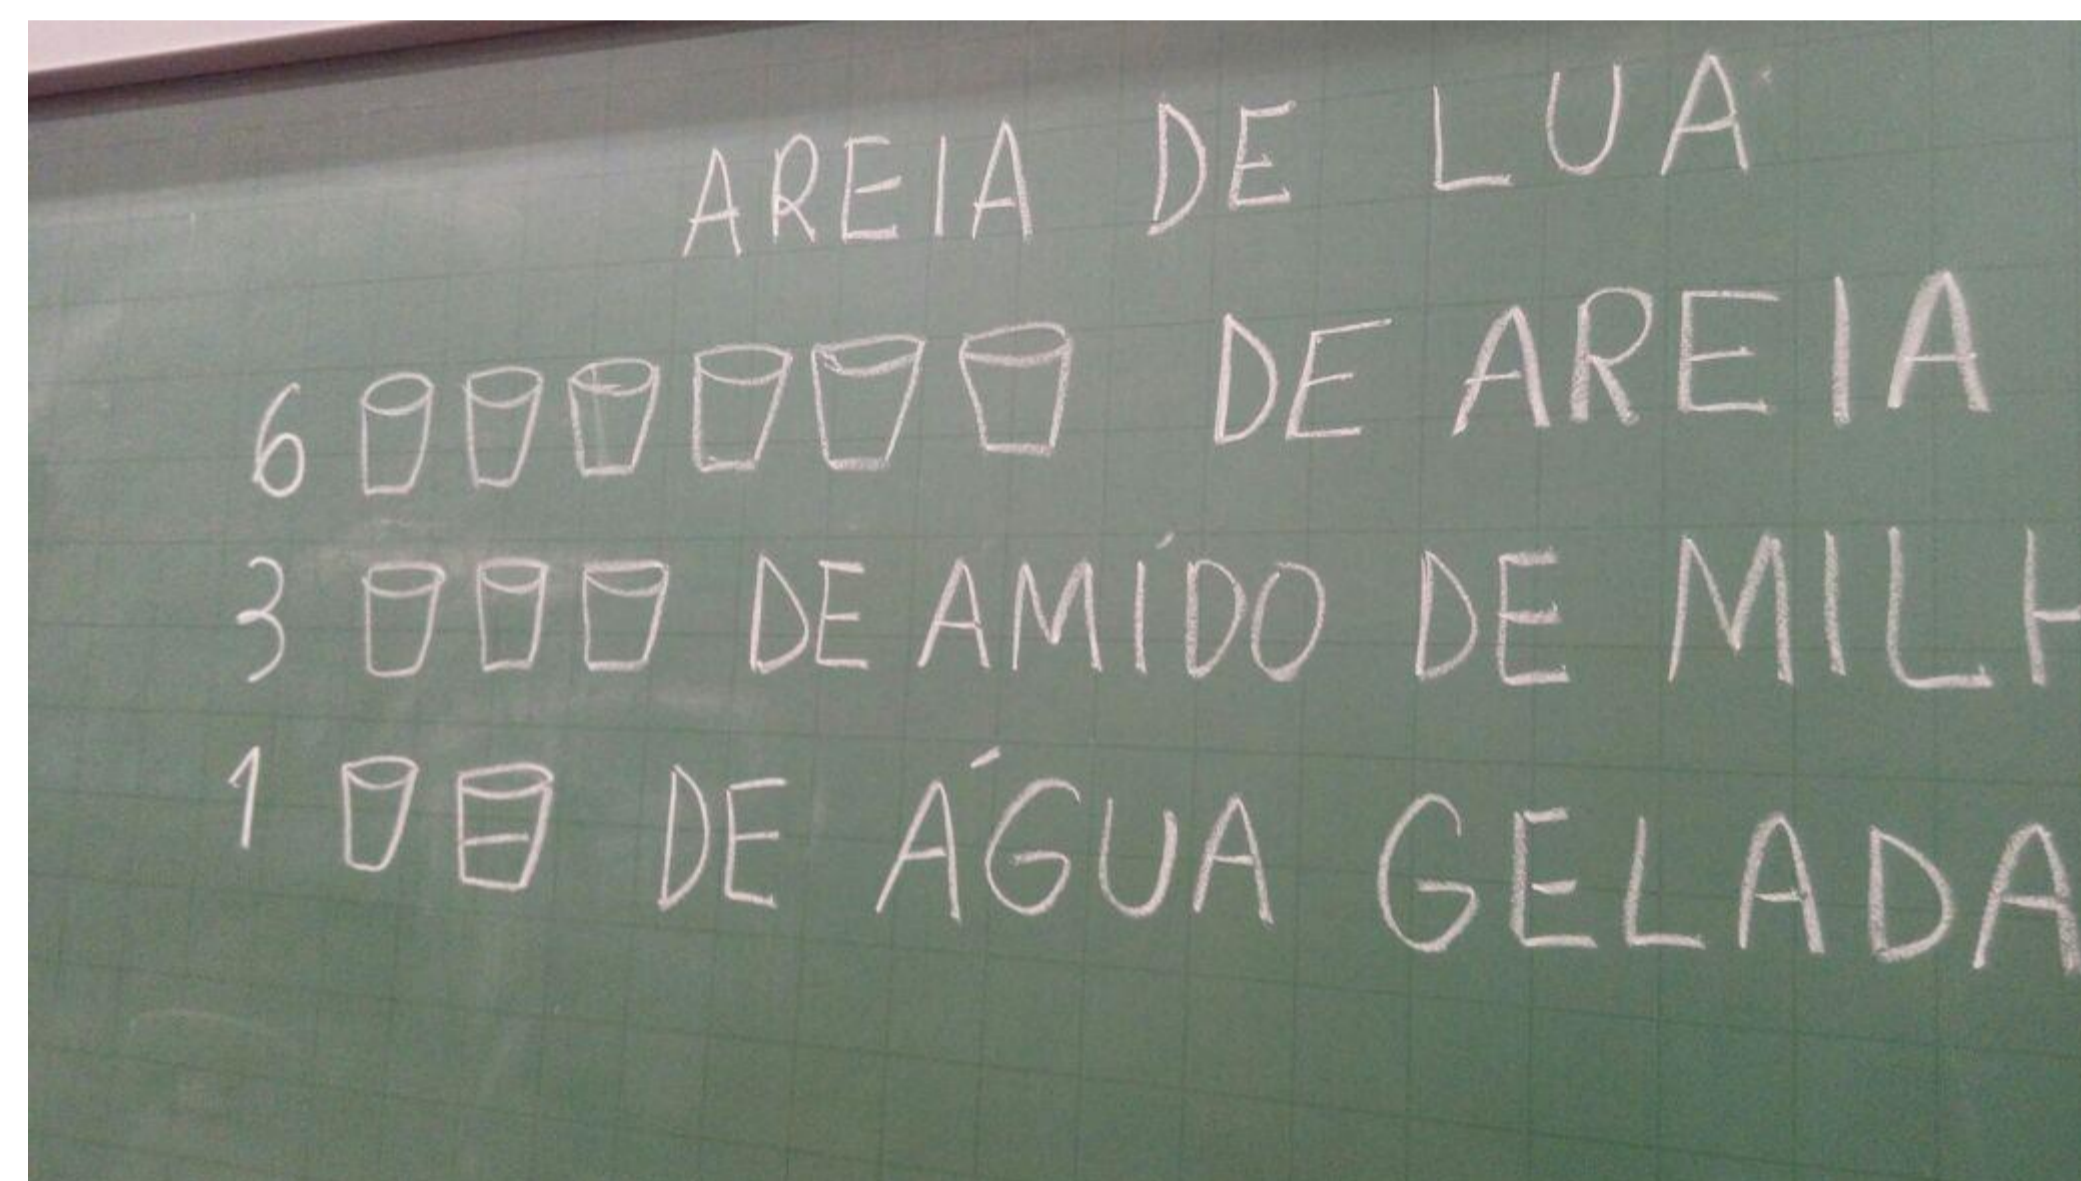 AREIA DE LUA
6 DE AREIA
3 DE AMÍDO DE MILH
1 DE ÁGUA GELADA